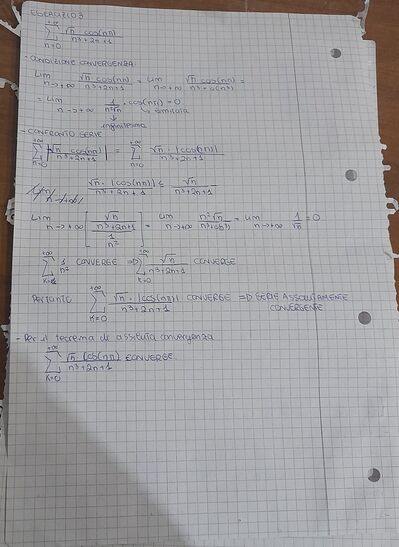 ESERCIZIO 3
+∞ ∑ n=0 √n cos(nπ) / n³+2n+1
- CONDIZIONE CONVERGENZA
lim n→+∞ √n cos(nπ) / n³+2n+1 = lim n→+∞ √n cos(nπ) / n³+o(n³) =
= lim n→+∞ 1 / n²√n · cos(nπ) = 0
↓ infinitesima ↳ limitata
- CONFRONTO SERIE
+∞ ∑ n=0 |√n cos(nπ) / n³+2n+1| = +∞ ∑ n=0 √n · |cos(nπ)| / n³+2n+1
√n · |cos(nπ)| / n³+2n+1 ≤ √n / n³+2n+1
lim n→+∞ [√n / n³+2n+1 / 1 / n²] = lim n→+∞ n²√n / n³+o(n³) = lim n→+∞ 1 / √n = 0
+∞ ∑ n=0 1 / n² CONVERGE => +∞ ∑ n=0 √n / n³+2n+1 CONVERGE
PERTANTO +∞ ∑ n=0 √n · |cos(nπ)| / n³+2n+1 CONVERGE => SERIE ASSOLUTAMENTE
CONVERGENTE
- Per il teorema di assoluta convergenza
+∞ ∑ n=0 √n · cos(nπ) / n³+2n+1 CONVERGE